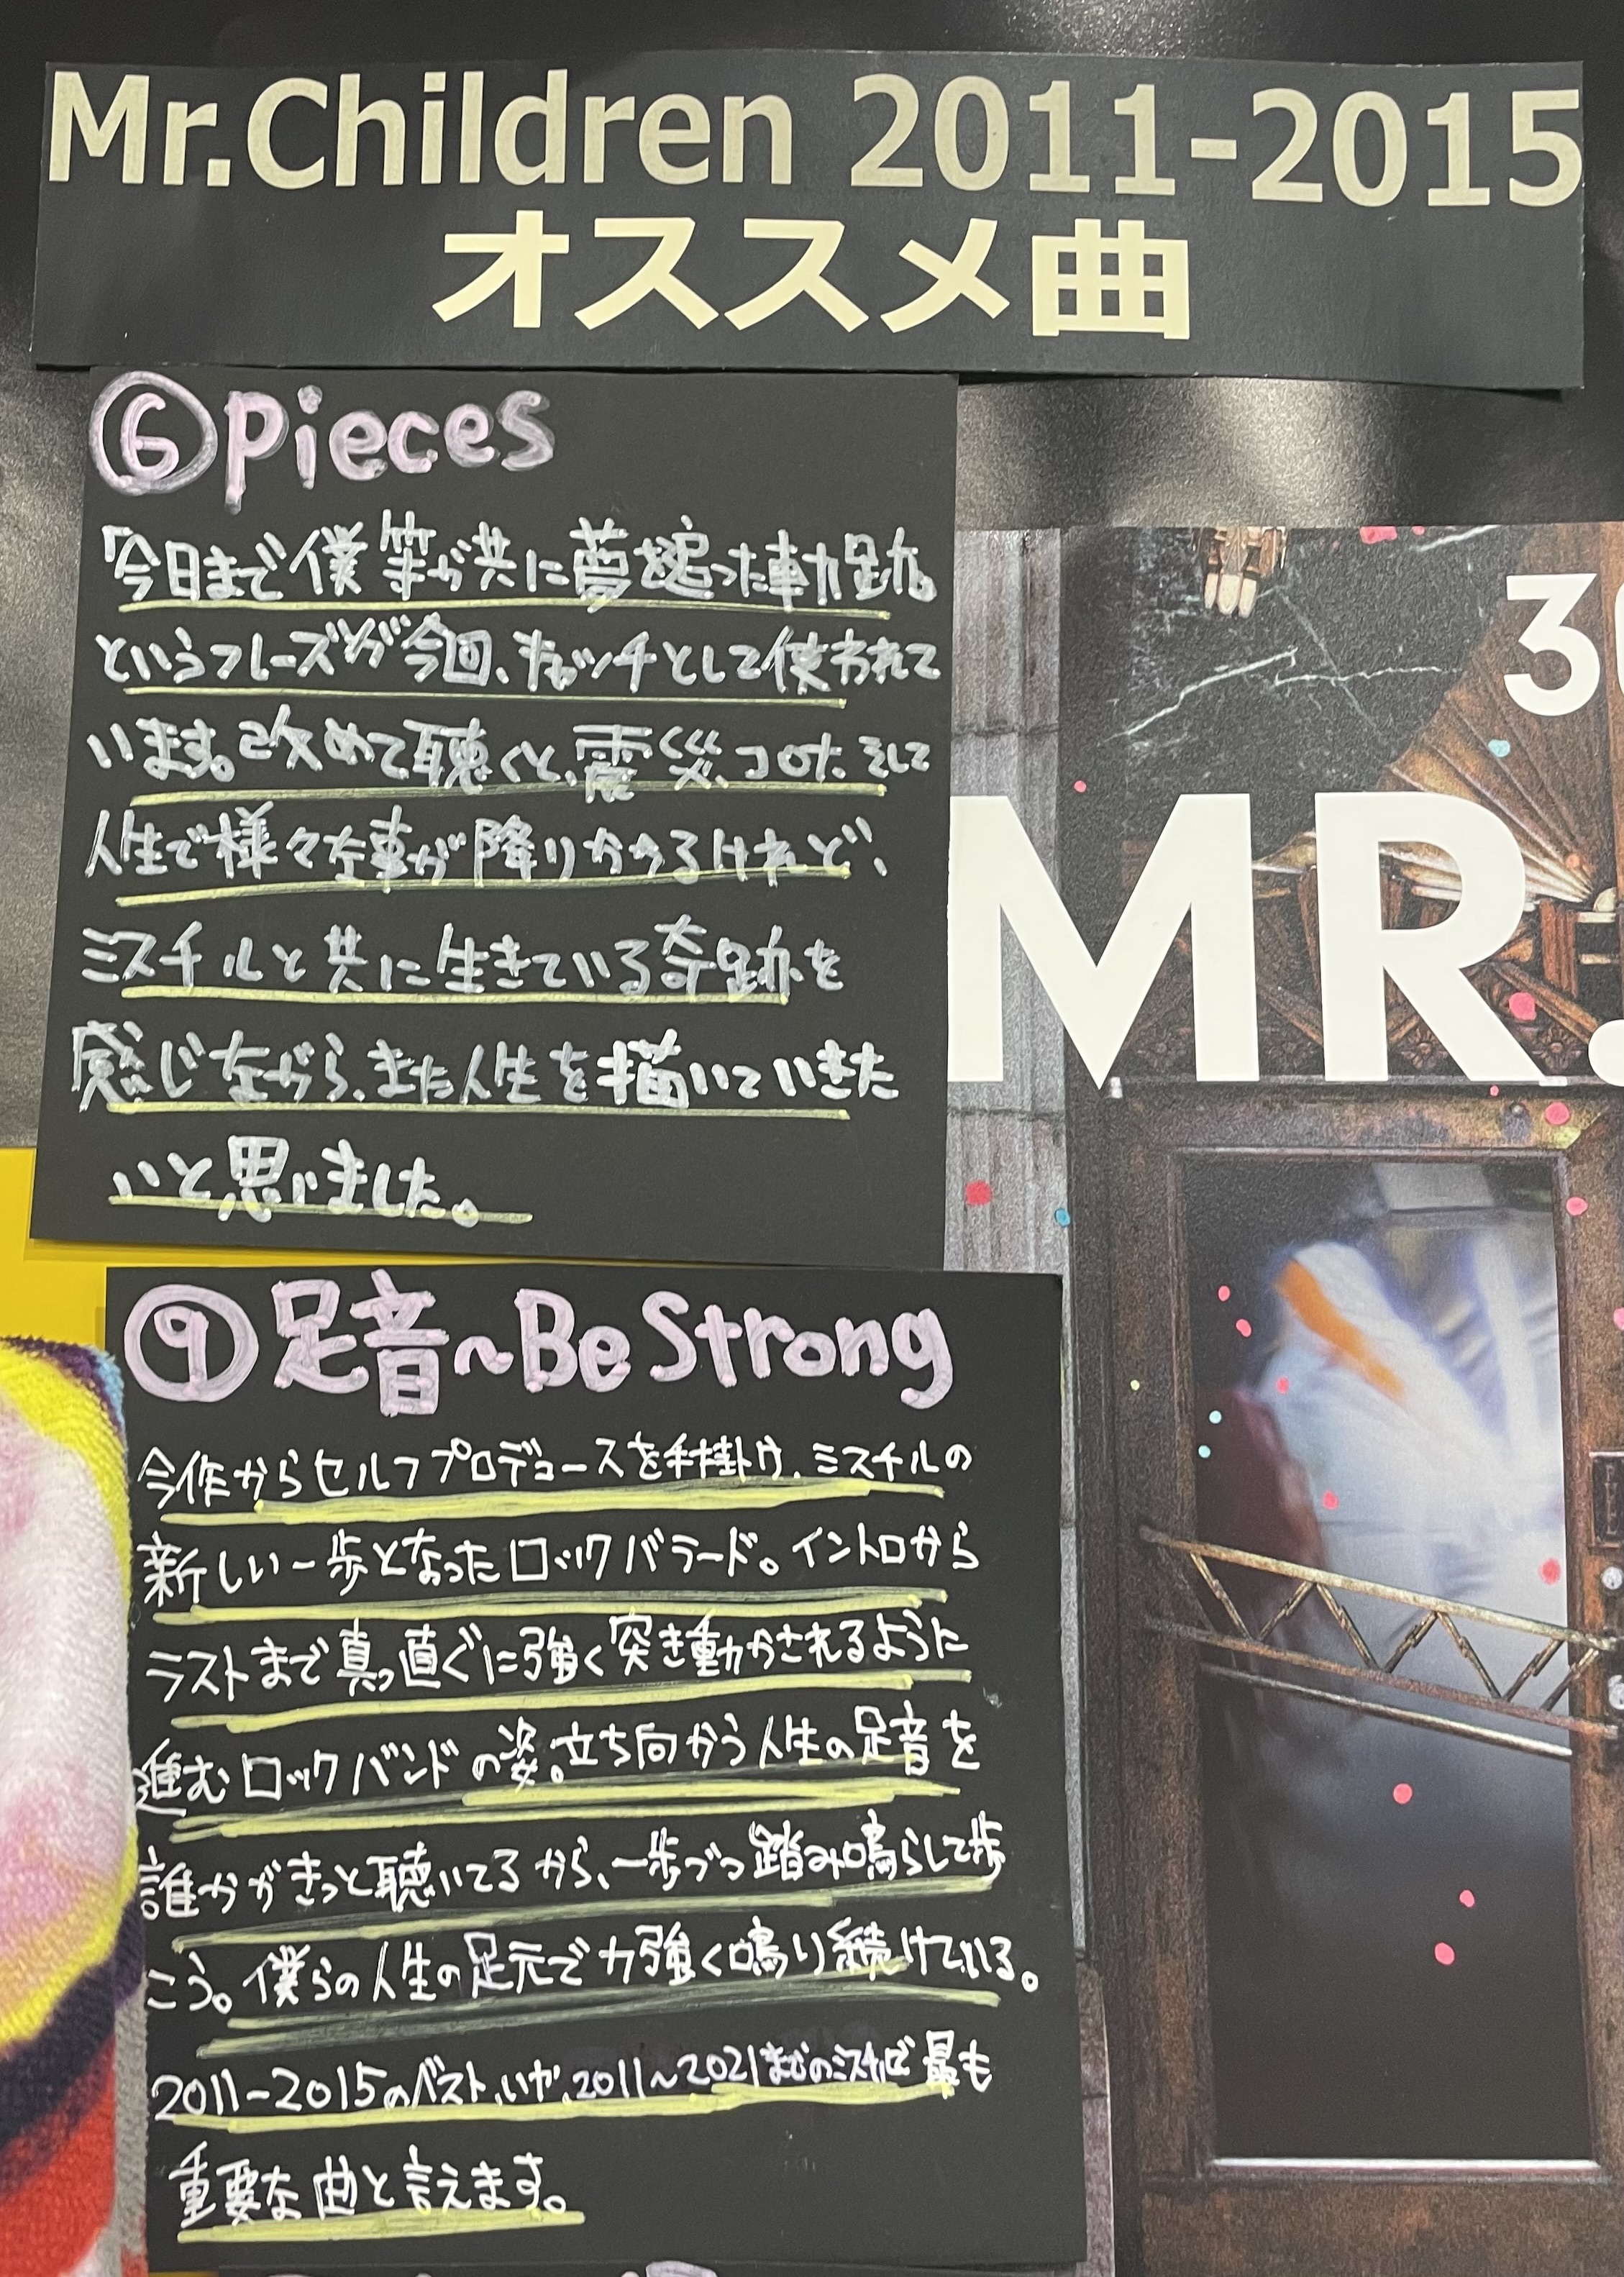 Mr.Children 2011-2015
オススメ曲
⑥Pieces
「今日まで僕等が共に夢追った軌跡」
というフレーズが今回、キャッチとして使われて
います。改めて聴くと、震災、コロナ、そして
人生で様々な事が降りかかるけれど、
ミスチルと共に生きている奇跡を
感じながら、また人生を描いていきた
いと思いました。
⑨足音~Be Strong
今作からセルフプロデュースを手掛け、ミスチルの
新しい一歩となったロックバラード。イントロから
ラストまで真っ直ぐに強く突き動かされるように
進むロックバンドの姿。立ち向かう人生の足音を
誰かがきっと聴いてるから、一歩づつ踏み鳴らして歩
こう。僕らの人生の足元で力強く鳴り続けている。
2011-2015のベスト、いや、2011~2021までのミスチルで最も
重要な曲と言えます。
3
MR.